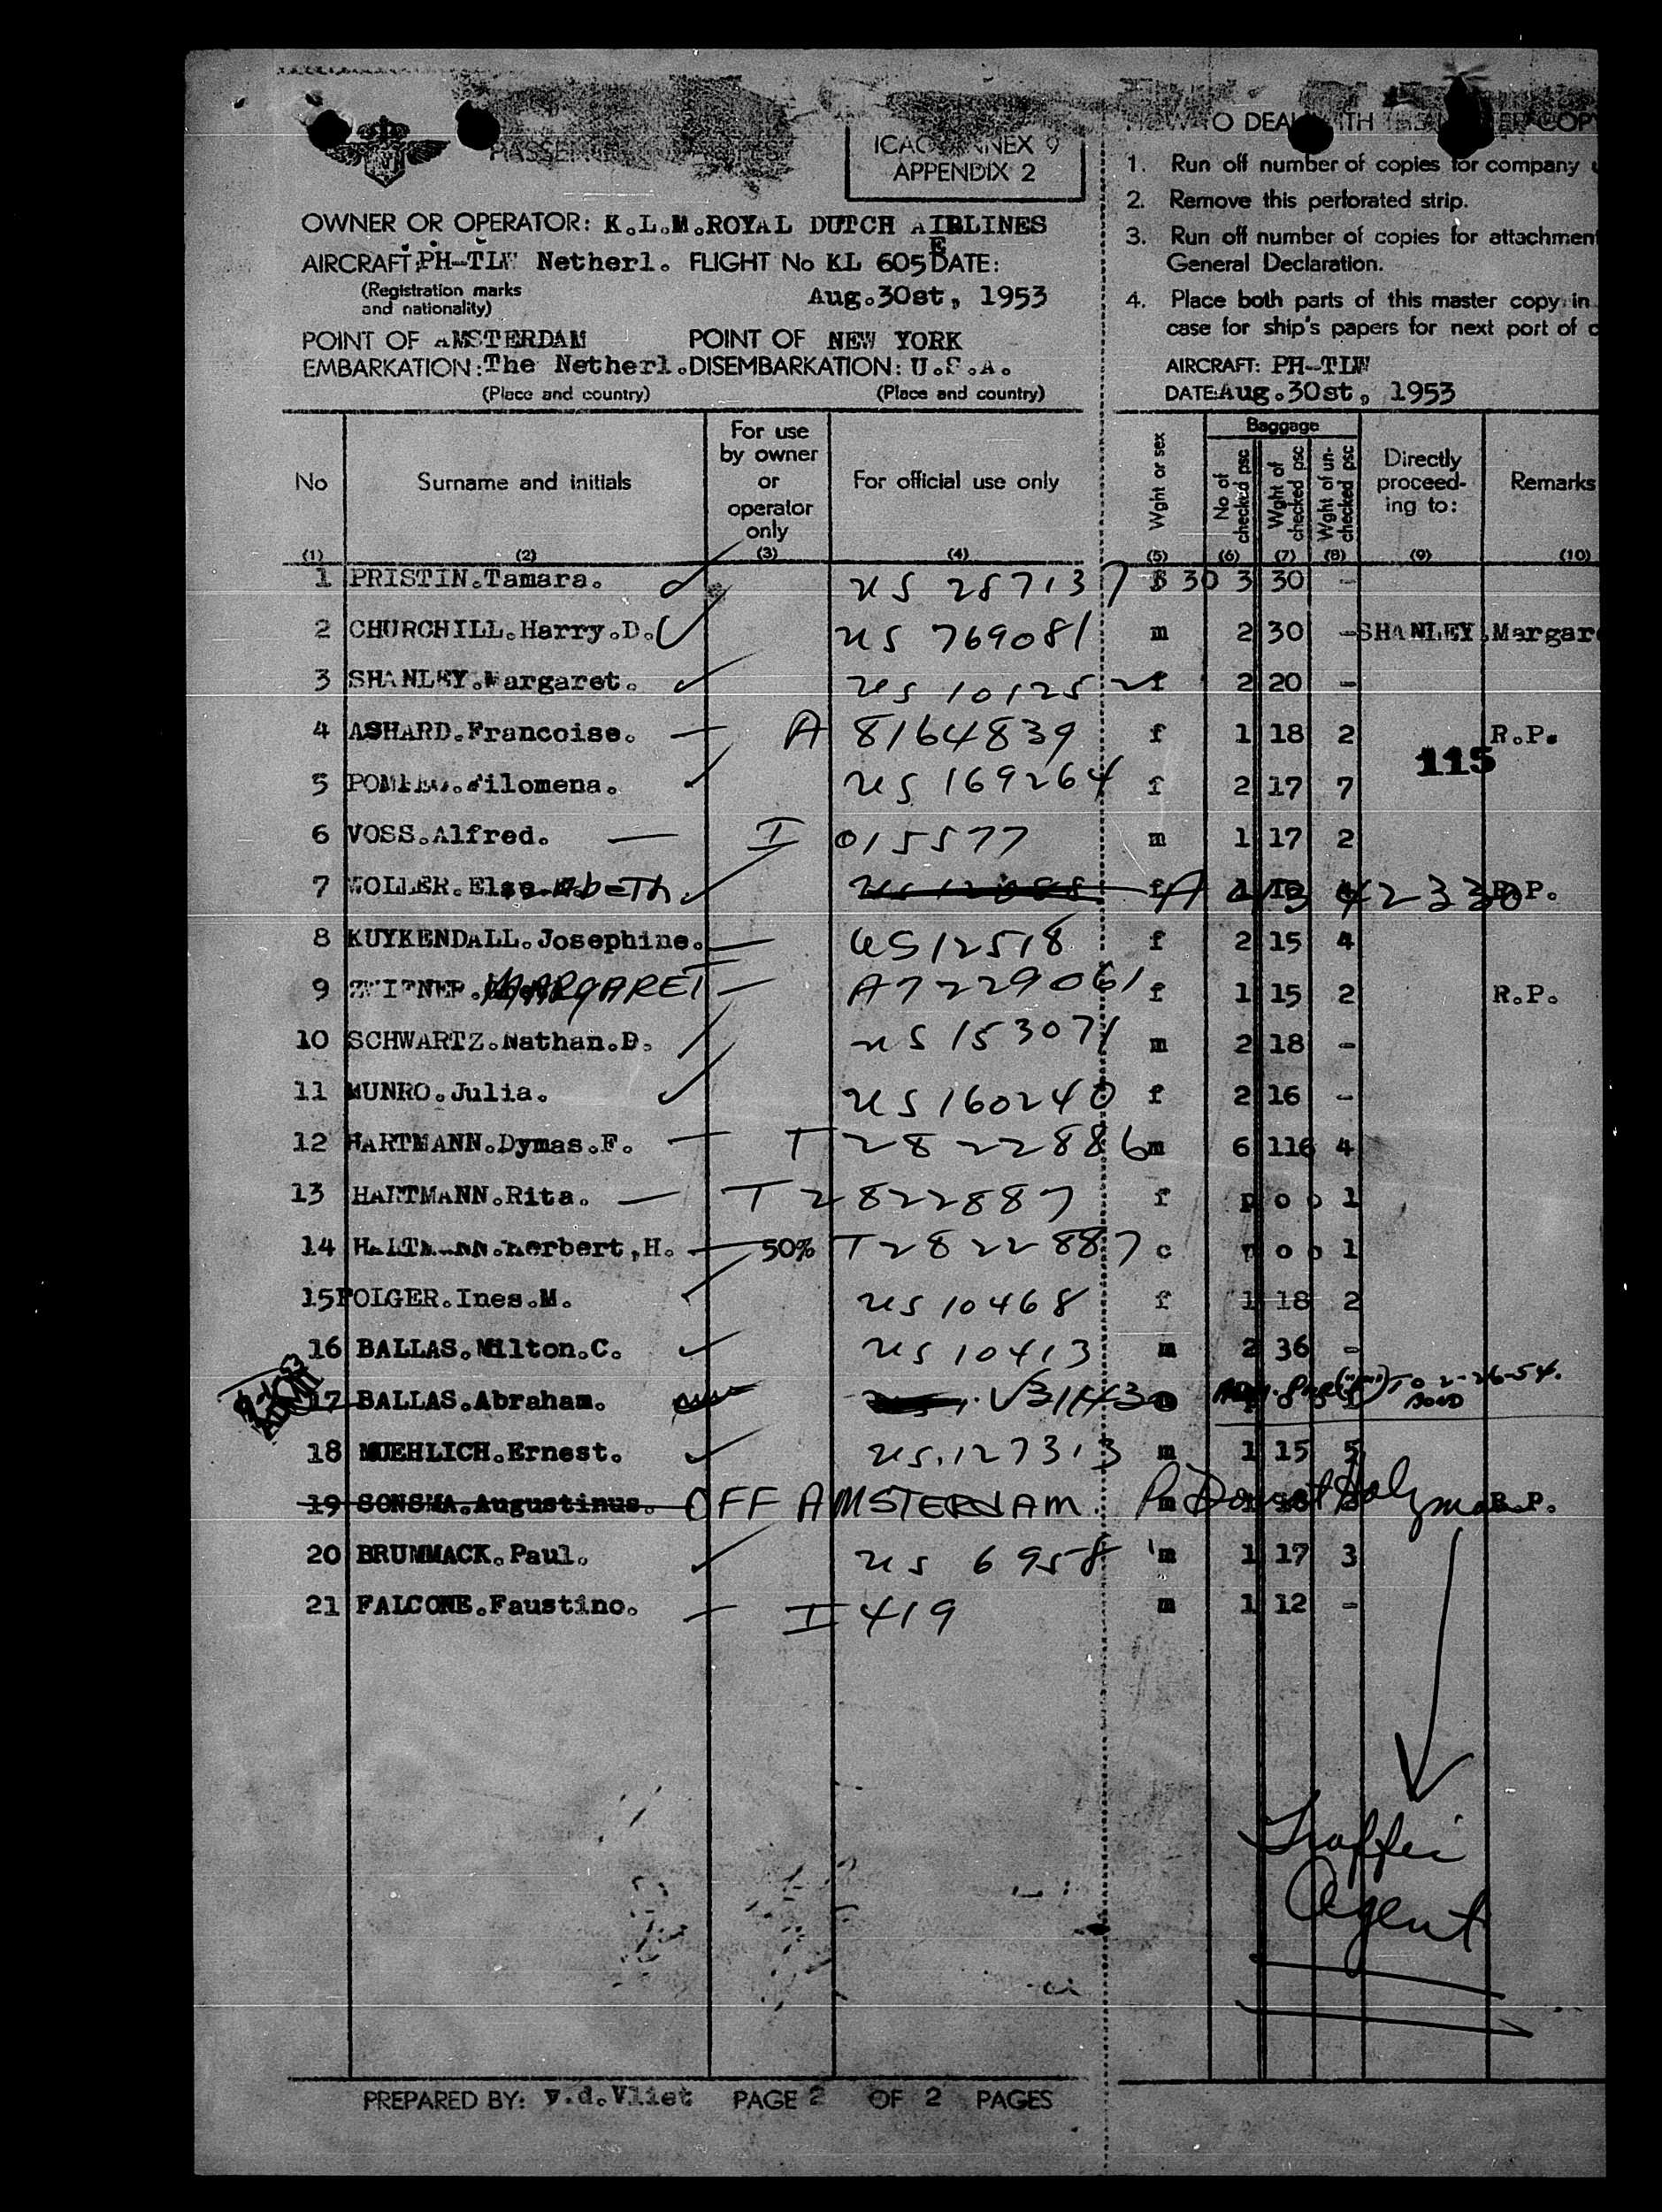 ICAO ANNEX 9
APPENDIX 2
OWNER OR OPERATOR: K.L.M. ROYAL DUTCH AIRLINES
AIRCRAFT: PH-TLW Netherl. FLIGHT No KL 605 E DATE:
(Registration marks and nationality) Aug.30st, 1953
POINT OF AMSTERDAM POINT OF NEW YORK
EMBARKATION: The Netherl. DISEMBARKATION: U.S.A.
(Place and country) (Place and country)
TO DEAL WITH COPY
1. Run off number of copies for company
2. Remove this perforated strip.
3. Run off number of copies for attachment
General Declaration.
4. Place both parts of this master copy in
case for ship's papers for next port of
AIRCRAFT: PH-TLW
DATE: Aug.30st, 1953
No Surname and initials For use by owner or operator only For official use only Wght or sex Baggage No of checked psc Wght of checked psc Wght of unchecked psc Directly proceeding to: Remarks
(1) (2) (3) (4) (5) (6) (7) (8) (9) (10)
1 PRISTIN.Tamara. US 257137 f 30 3 30 -
2 CHURCHILL.Harry.D. US 769081 m 2 30 - SHANLEY.Margar
3 SHANLEY.Margaret. US 10125 f 2 20 -
4 ASHARD.Francoise. A 8164839 f 1 18 2 R.P.
115
5 Filomena. US 169264 f 2 17 7
6 VOSS.Alfred. I 015577 m 1 17 2
7 WOLLER. R.P.
8 KUYKENDALL.Josephine. US 12518 f 2 15 4
9 MARGARET A7229061 f 1 15 2 R.P.
10 SCHWARTZ.Nathan.D. US 153071 m 2 18 -
11 MUNRO.Julia. US 160240 f 2 16 -
12 HARTMANN.Dymas.F. T 2822886 m 6 116 4
13 HARTMANN.Rita. T 2822887 f p o o l
14 HARTMANN.Herbert,H. 50% T 2822887 c p o o l
15 FOLGER.Ines.M. US 10468 f 1 18 2
16 BALLAS.Milton.C. US 10413 m 2 36 -
17 BALLAS.Abraham. To 2-26-54.
18 MUEHLICH.Ernest. US.127313 m 1 15 5
19 SONSMA.Augustinus. OFF AMSTERDAM. R.P.
20 BRUMMACK.Paul. US 6958 m 1 17 3
21 FALCONE.Faustino. I 419 m 1 12 -
Traffic
Agent
PREPARED BY: v.d.Vliet PAGE 2 OF 2 PAGES